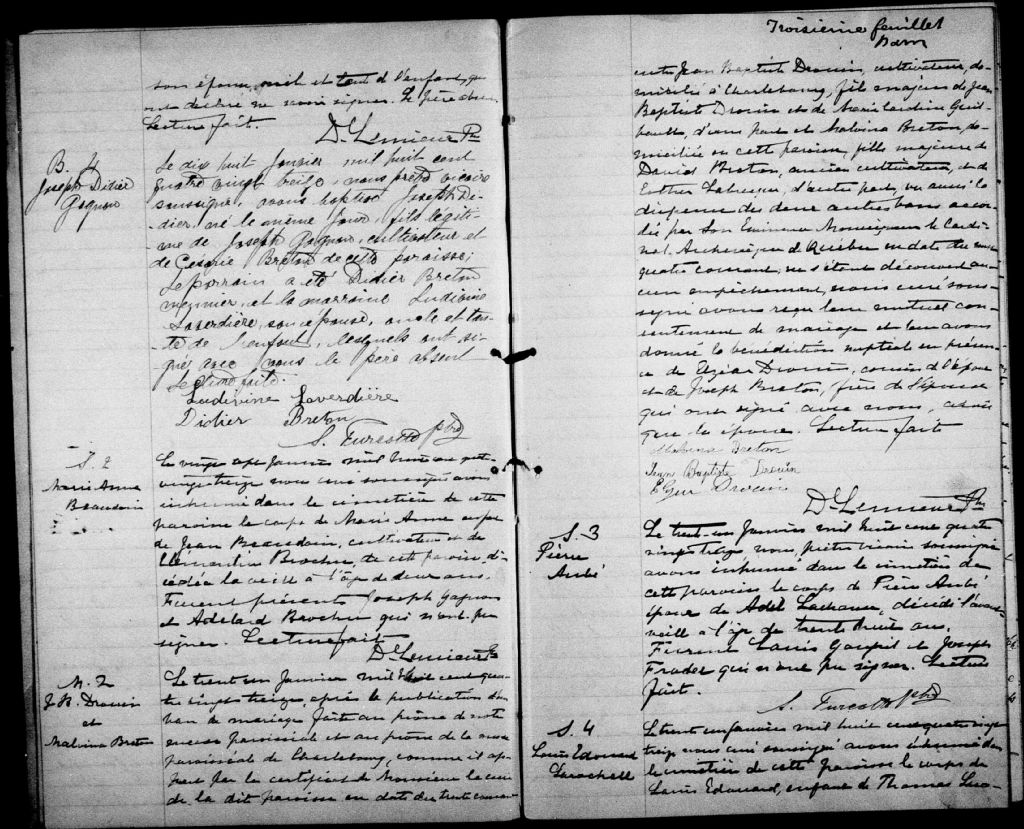 son épouse, oncle et tante de l'enfant, qui
ont déclaré ne savoir signer. Le père absent
Lecture faite.
D. Lemieux Ptre
B. 4
Joseph Didier
Gagnon
Le dix huit Janvier mil huit cent
quatre vingt treize, nous prêtre vicaire
soussigné, avons baptisé Joseph Di-
dier, né le même jour, fils légiti-
me de Joseph Gagnon, cultivateur et
de Breton de cette paroisse;
Le parrain a été Didier Breton
meunier, et la marraine Ludivine
Laverdière, son épouse, oncle et tan-
te de l'enfant, lesquels ont si-
gné avec nous le père absent
Lecture faite.
Ludivine Laverdière
Didier Breton
S. Turcotte ptre
S. 2
Marie Anne
Beaudoin
Le vingt sept Janvier mil huit cent quatre
vingt treize nous curé soussigné avons
inhumé dans le cimetière de cette
paroisse le corps de Marie Anne enfant
de Jean Beaudoin, cultivateur et de
Clémentine Brochu, de cette paroisse, dé-
cédée la veille à l'âge de deux ans.
Furent présents Joseph Gagnon
et Adélard Brochu qui n'ont pu
signer Lecture faite
D. Lemieux Ptre
M. 2
J. B. Drouin
et
Malvina Breton
Le trente un Janvier mil huit cent qua-
tre vingt treize, après la publication d'un
ban de mariage faite au prône de notre
messe paroissiale et au prône de la messe
paroissiale de Charlesbourg, comme il ap-
pert par le certificat de Monsieur le curé
de la dite paroisse en date du trente courant
Troisième feuillet
entre Jean Baptiste Drouin, cultivateur, do-
micilié à Charlesbourg, fils majeur de Jean
Baptiste Drouin et de Guil-
bault, d'une part et Malvina Breton, do-
miciliée en cette paroisse, fille majeure de
David Breton, ancien cultivateur, et de
Esther d'autre part, vu aussi la
dispense des deux autres bans accor-
dée par Son Eminence Monseigneur le Cardi-
nal Archevêque de Québec en date du vingt
quatre courant; ne s'étant découvert au-
cun empêchement, nous curé sous-
signé avons reçu leur mutuel con-
sentement de mariage et leur avons
donné la bénédiction nuptiale en présen-
ce de Drouin, cousin de l'époux
et de Joseph Breton, frère de l'épouse
qui ont signé avec nous,
que la épouse. Lecture faite
Malvina Breton
Jean Baptiste Drouin
Drouin
D. Lemieux Ptre
S. 3
Pierre
Aubé
Le trente-un Janvier mil huit cent quatre
vingt treize nous, prêtre vicaire soussigné
avons inhumé dans le cimetière de
cette paroisse le corps de Pierre Aubé
époux de Adèle Lachance, décédé l'avant
veille à l'âge de trente huit ans.
Furent Louis Goupil et Joseph
Fradet qui n'ont pu signer. Lecture
faite.
S. Turcotte ptre
S. 4
Louis Edouard
Larochelle
Le trente un Janvier mil huit cent quatre vingt
treize nous curé soussigné avons inhumé dans
le cimetière de cette paroisse le corps de
Louis Edouard, enfant de Thomas Laro-